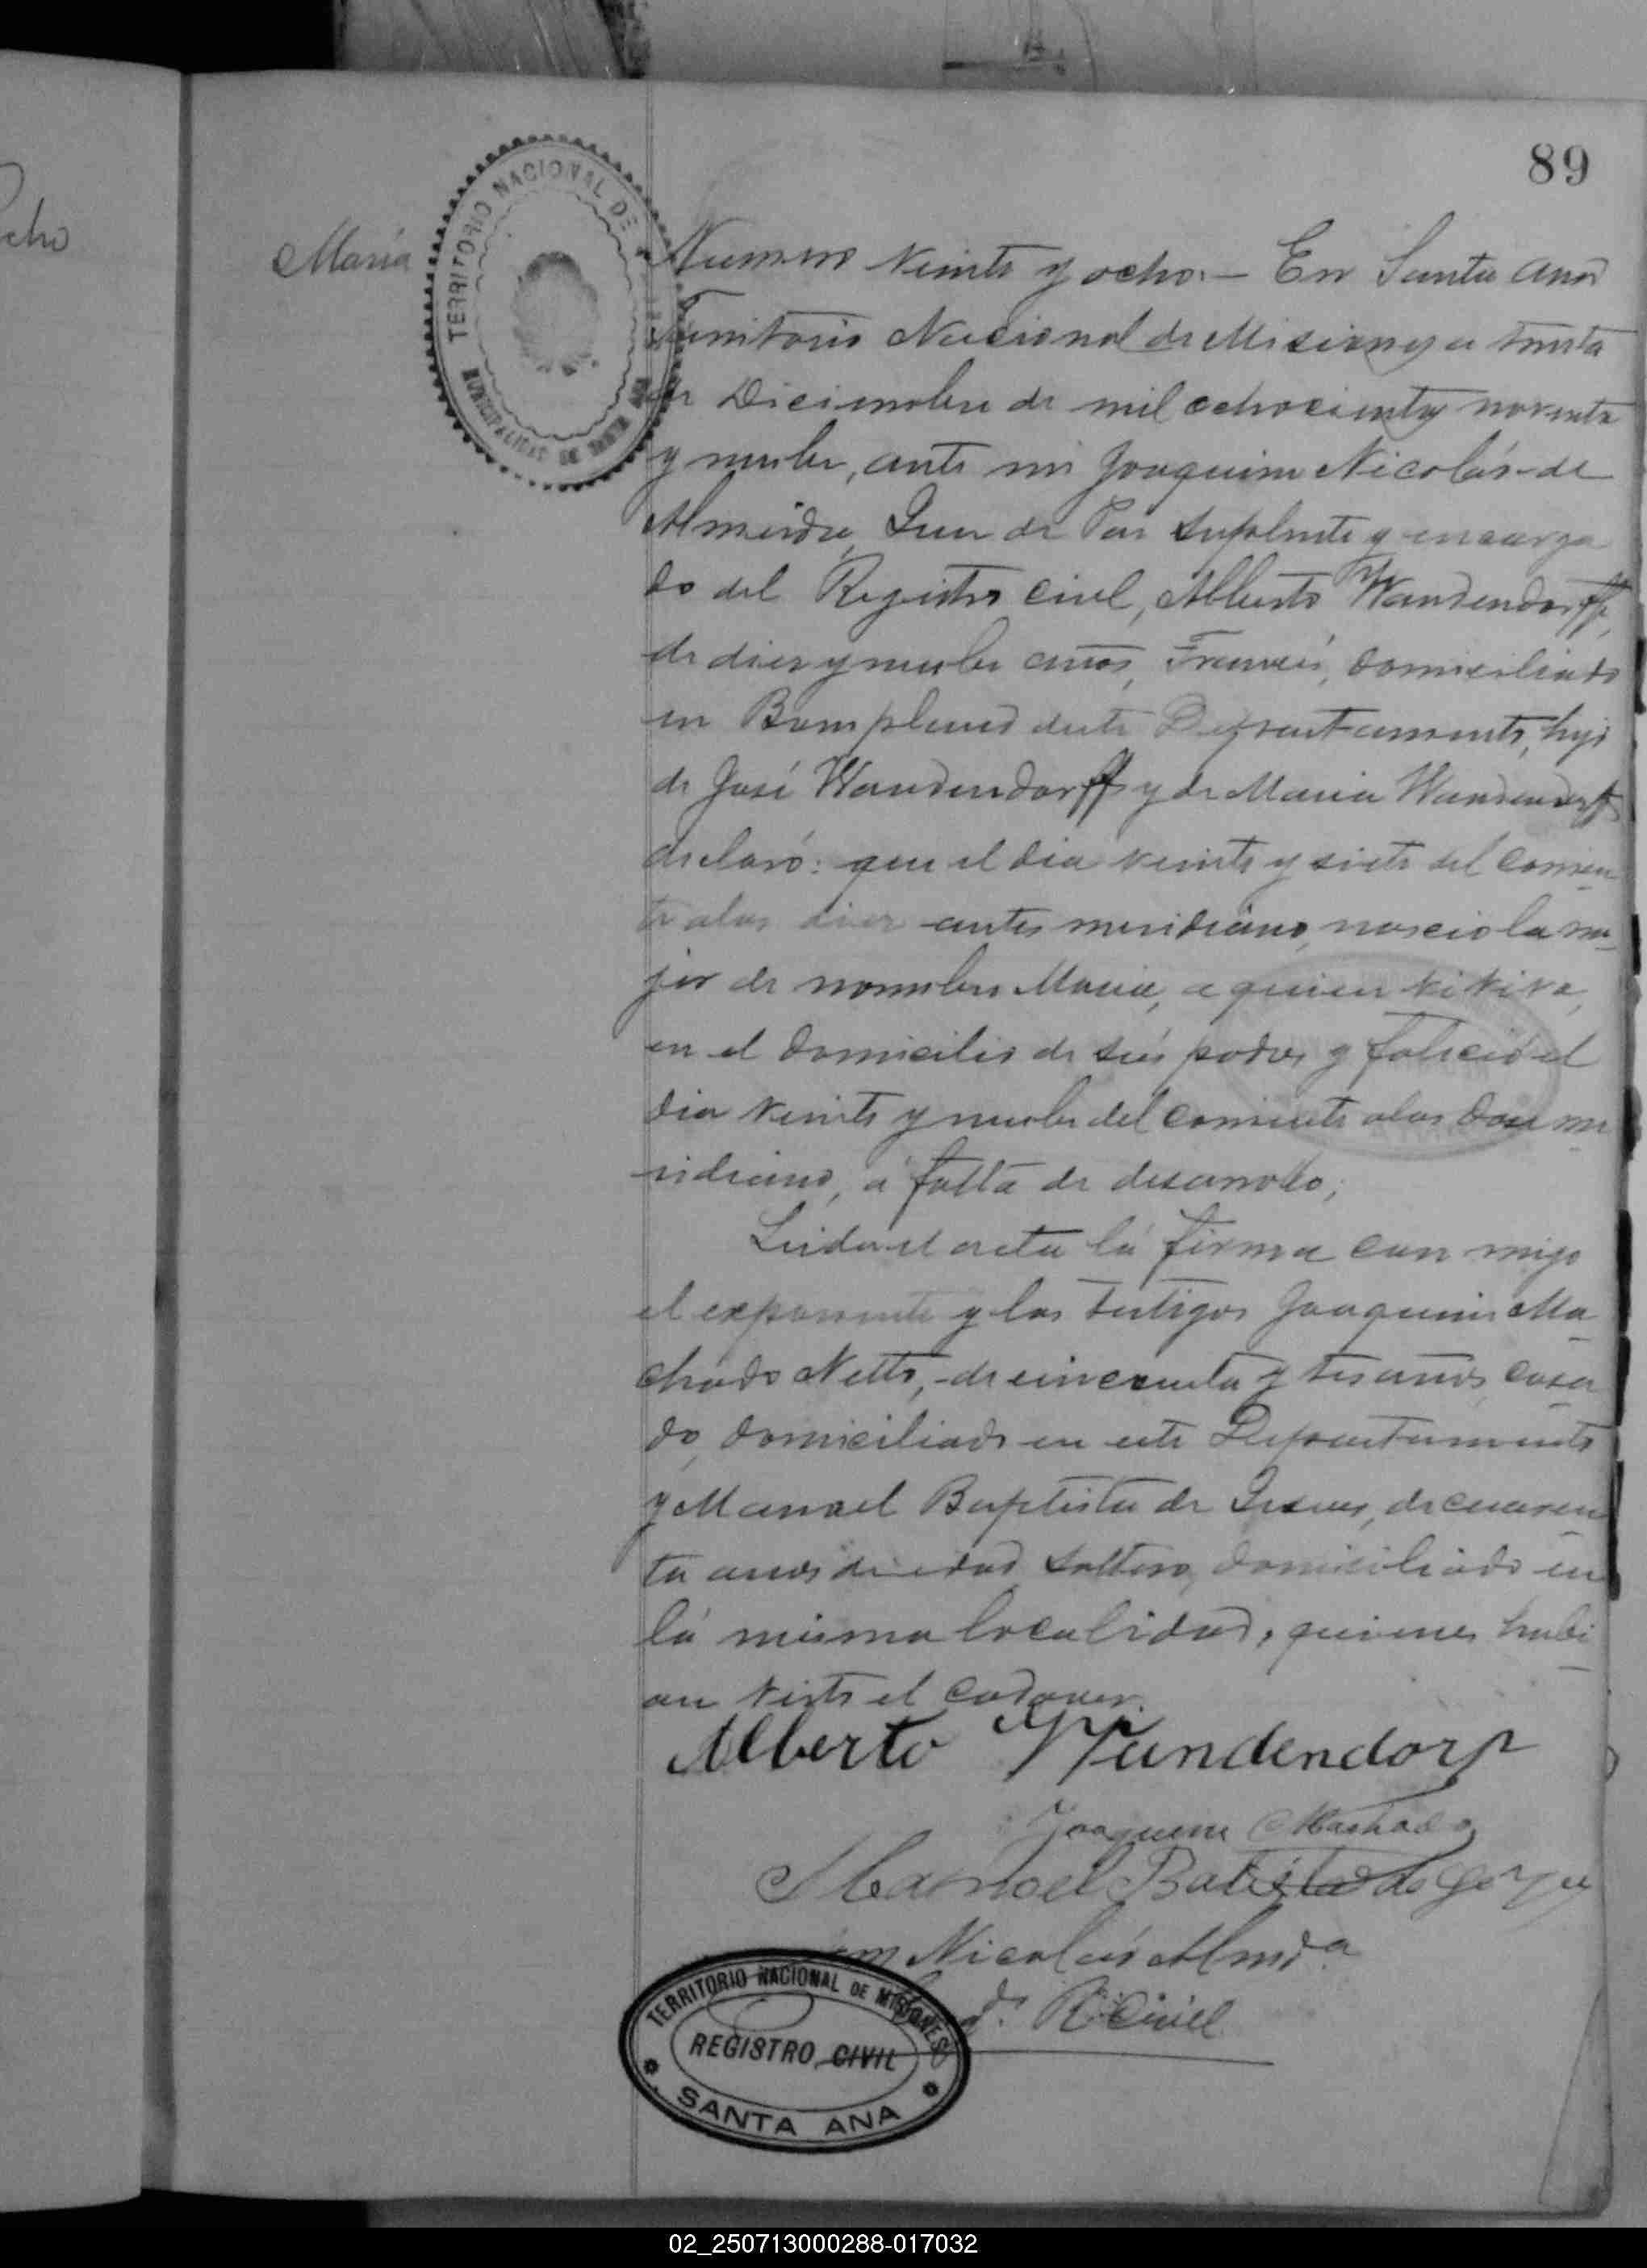 89
María
TERRITORIO NACIONAL DE
MUNICIPALIDAD DE SANTA ANA
Numero veinte y ocho. — En Santa Ana
Territorio Nacional de Misiones a treinta
de Diciembre de mil ochocientos noventa
y nuebe, ante mi Joaquim Nicolás de
Almeida, Juez de Paz Suplente y encarga
do del Registro Civil, Alberto Wandendorff,
de diez y nuebe años, Francés, domiciliado
en Bompland deste Departamento, hijo
de José Wandendorff y de Maria Wandendorff
declaró: que el dia veinte y siete del corrien
te alas diez antes meridiano, nascio la mu
jer de nombre Maria, a quien
en el domicilio de sús padres y falició el
dia veinte y nuebe del corriente alas doce me
ridiano, á falta de desarrollo;
Leida el acta lá firma con migo
el exponente y los testigos Joaquim Ma
chado Netto, de cincuenta y tres años, casa
do, domiciliado en este Departamento
y Manoel Baptista de Jesus, de cuaren
ta anos de edad soltero, domiciliado en
lá misma localidad, quienes habi
an visto el cadaver.
Alberto Wandendorf
Joaquim Machado
Manoel Batista de
Nicolás Almda
R. Civil
TERRITORIO NACIONAL DE MISIONES
REGISTRO CIVIL
SANTA ANA
02_250713000288-017032